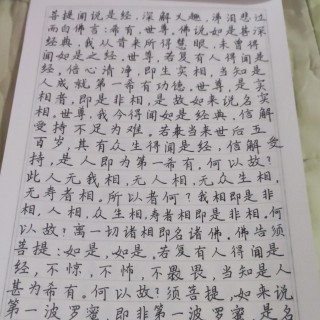 菩提闻说是经，深解义趣，涕泪悲泣
而白佛言：希有，世尊，佛说如是甚深
经典，我从昔来所得慧眼，未曾得
闻如是之经，世尊，若复有人得闻是
经，信心清净，即生实相，当知是
人成就第一希有功德，世尊，是实
相者，即是非相，是故如来说名实
相，世尊，我今得闻如是经典，信解
受持不足为难，若当来世后五
百岁，其有众生得闻是经，信解受
持，是人即为第一希有，何以故？
此人无我相，无人相，无众生相，
无寿者相，所以者何？我相即是非
相，人相，众生相，寿者相即是非相，何
以故？离一切诸相即名诸佛，佛告须
菩提：如是，如是，若复有人得闻是
经，不惊，不怖，不畏，当知是人
甚为希有，何以故？须菩提，如来说
第一波罗蜜，即非第一波罗蜜，是名